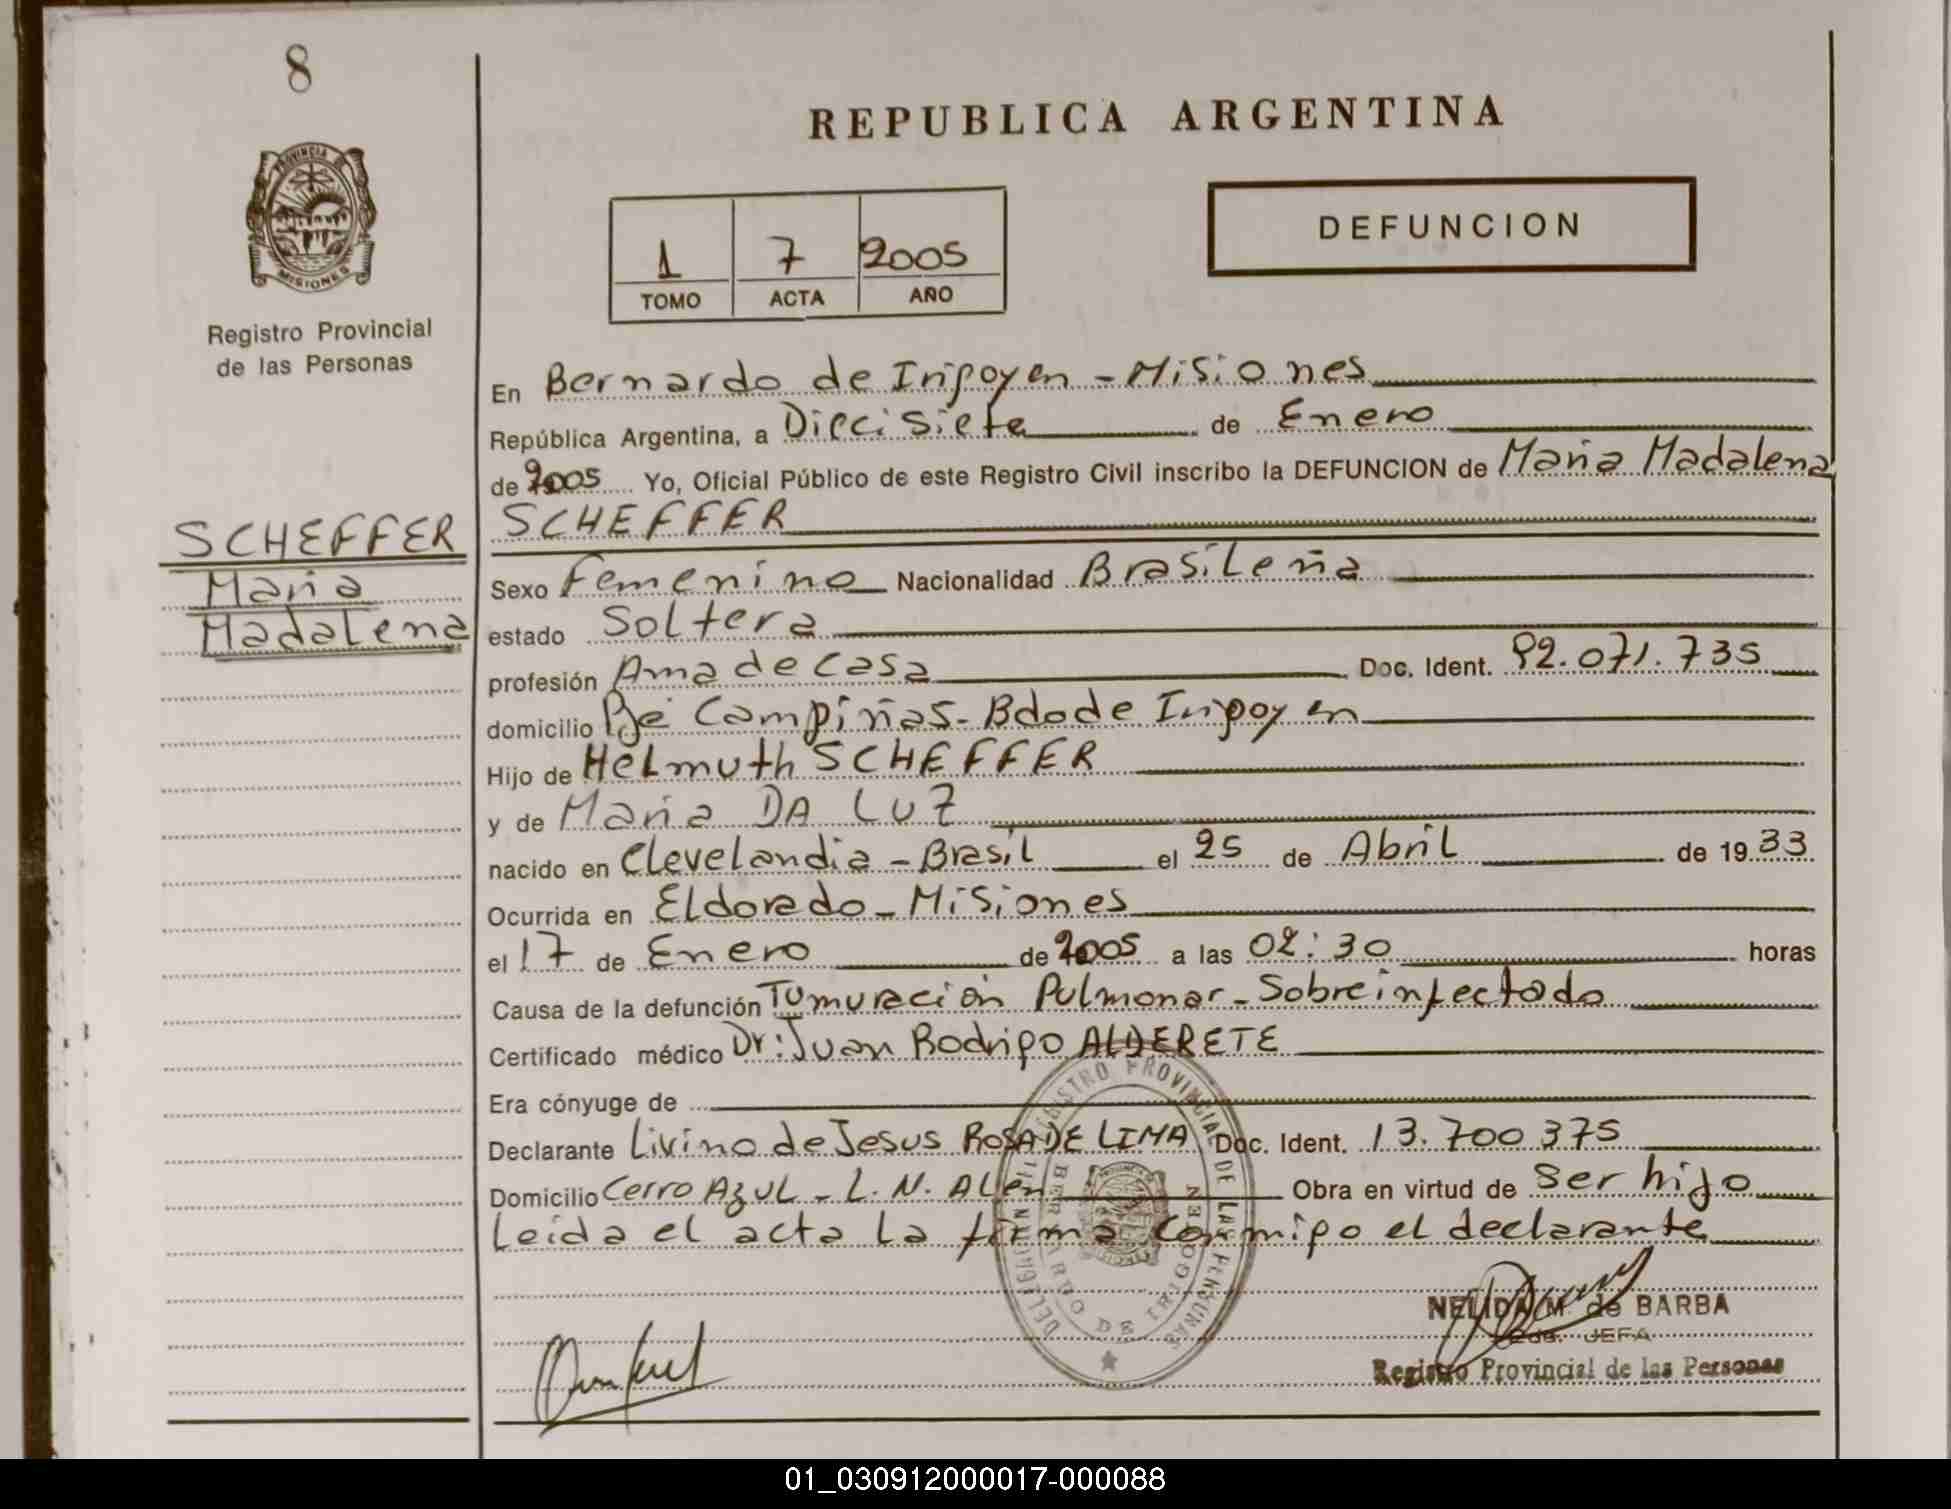 8
PROVINCIA DE
MISIONES
Registro Provincial
de las Personas
SCHEFFER
Maria
Madalena
REPUBLICA ARGENTINA
1 7 2005
TOMO ACTA AÑO
DEFUNCION
En Bernardo de Irigoyen - Misiones
República Argentina, a Diecisiete de Enero
de 2005 Yo, Oficial Público de este Registro Civil inscribo la DEFUNCION de Maria Madalena
SCHEFFER
Sexo Femenino Nacionalidad Brasileña
estado Soltera
profesión Ama de casa Doc. Ident. 92.071.735
domicilio Campiñas - Bdo de Irigoyen
Hijo de Helmuth SCHEFFER
y de Maria DA LUZ
nacido en Clevelandia - Brasil el 25 de Abril de 1933
Ocurrida en Eldorado - Misiones
el 17 de Enero de 2005 a las 02:30 horas
Causa de la defunción Tumuración Pulmonar - Sobreinfectado
Certificado médico Dr: Juan Rodrigo ALDERETE
Era cónyuge de
Declarante Livino de Jesus ROSA DE LIMA Doc. Ident. 13.700375
Domicilio Cerro Azul - L. N. Alen Obra en virtud de ser hijo
Leida el acta la firma conmigo el declarante
REGISTRO PROVINCIAL DE LAS PERSONAS
BERNARDO DE IRIGOYEN
NELIDA M. de BARBA
2da. JEFA
Registro Provincial de las Personas
01_030912000017-000088